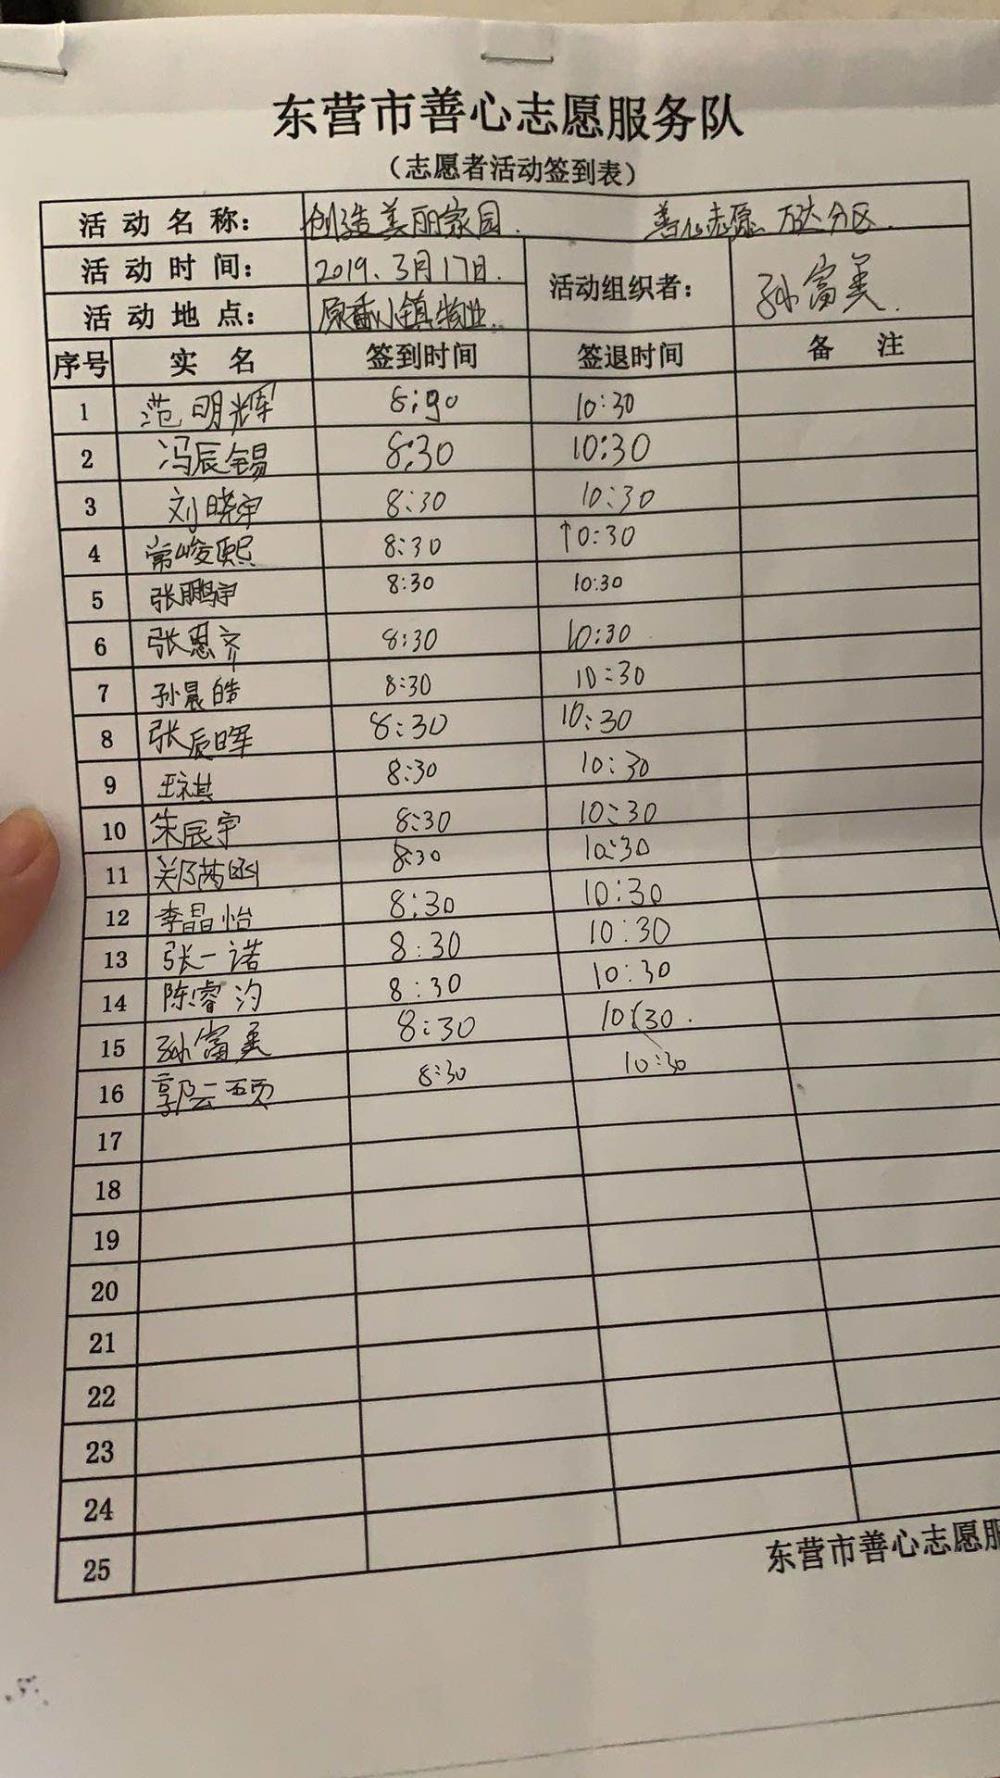 东营市善心志愿服务队
（志愿者活动签到表）
活动名称： 创造美丽家园. 善心志愿 万达分区.
活动时间： 2019.3月17日. 活动组织者： 孙富美.
活动地点： 原香小镇物业.
序号 实名 签到时间 签退时间 备注
1 范明辉 8:90 10:30
2 冯辰锡 8:30 10:30
3 刘晓宇 8:30 10:30
4 常峻熙 8:30 10:30
5 张鹏宇 8:30 10:30
6 张恩齐 8:30 10:30
7 孙晨皓 8:30 10:30
8 张辰晖 8:30 10:30
9 王祺 8:30 10:30
10 朱辰宇 8:30 10:30
11 8:30 10:30
12 李晶怡 8:30 10:30
13 张一诺 8:30 10:30
14 陈睿汋 8:30 10:30
15 孙富美 8:30 10:30.
16 郭云 8:30 10:30
17
18
19
20
21
22
23
24
25
东营市善心志愿服